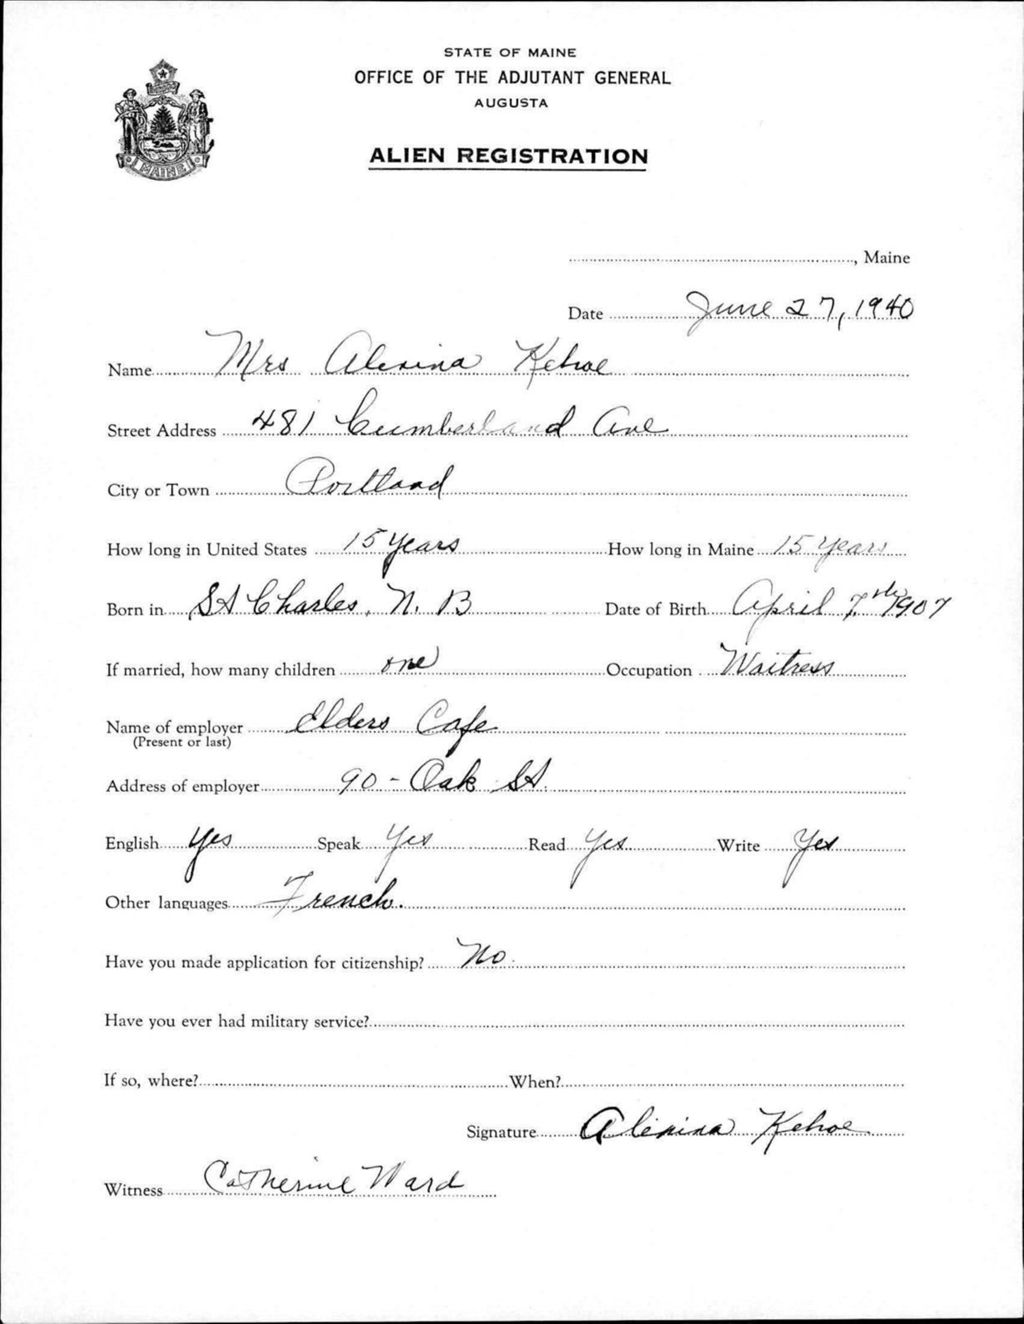 STATE OF MAINE
OFFICE OF THE ADJUTANT GENERAL
AUGUSTA
ALIEN REGISTRATION
MAINE
, Maine
Date June 27, 1940
Name Mrs Alexina Kehoe
Street Address 481 Cumberland Ave
City or Town Portland
How long in United States 15 years How long in Maine 15 years
Born in St Charles, N. B Date of Birth April 7th 1907
If married, how many children one Occupation Waitress
Name of employer Elders Cafe
(Present or last)
Address of employer 90 - Oak St.
English Yes Speak Yes Read Yes Write Yes
Other languages French.
Have you made application for citizenship? No.
Have you ever had military service?
If so, where? When?
Signature Alexina Kehoe
Witness Catherine Ward